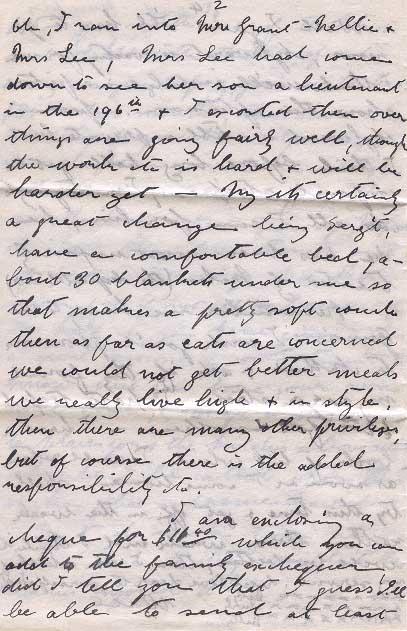 2
oh, I ran into Mrs Grant - Nellie &
Mrs Lee, Mrs Lee had come
down to see her son a lieutenant
in the 196th & I escorted them over
things are going fairly well, though
the work to is hard & will be
harder yet — My its certainly
a great change being Serg't,
have a comfortable bed, a-
bout 30 blankets under me so
that makes a pretty soft couch
then as far as eats are concerned
we could not get better meals
we really live high & in style,
then there are many other privileges,
but of course there is the added
responsibility to.
I am enclosing a
cheque for $16.40 which you can
add to the family exchequer
did I tell you that I guess I'll
be able to send at least